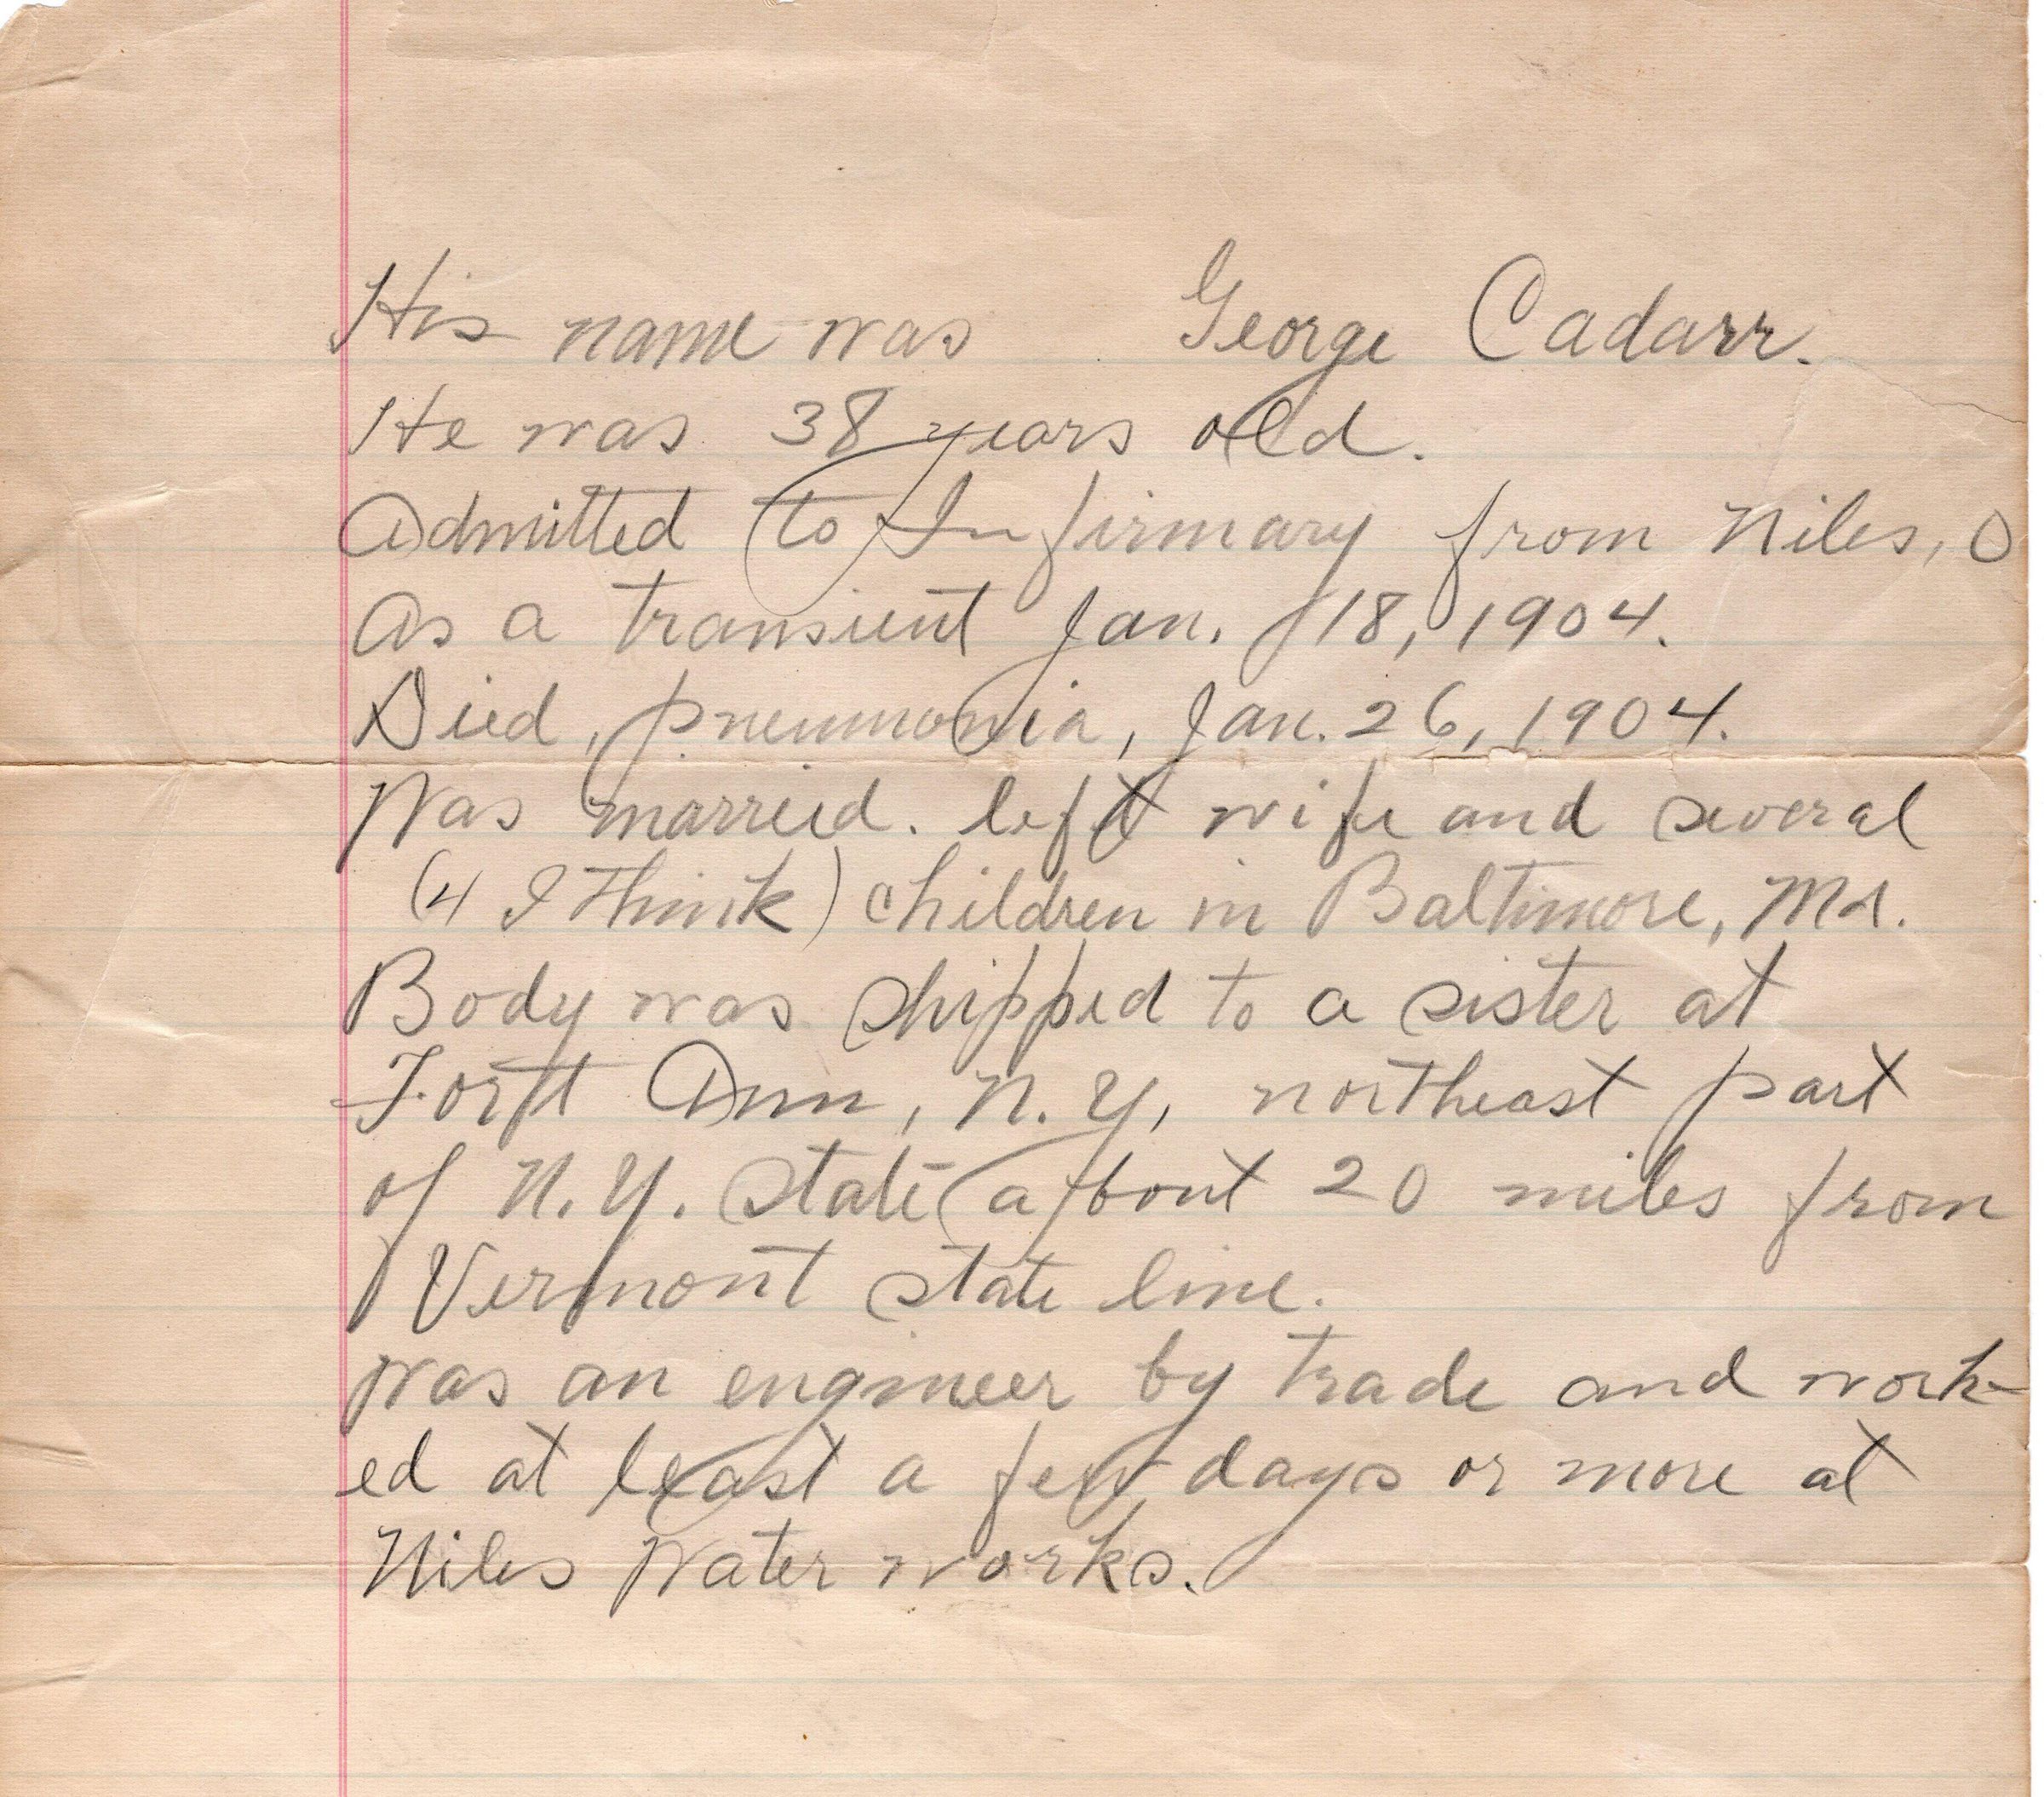 His name was George Cadarr.
He was 38 years old.
Admitted to Infirmary from Niles, O
As a transient Jan. 18, 1904.
Died, pneumonia, Jan. 26, 1904.
Was married. left wife and several
(4 I think) children in Baltimore, Md.
Body was shipped to a sister at
Fort Ann, N.Y, northeast part
of N.Y. State about 20 miles from
Vermont state line.
Was an engineer by trade and work-
ed at least a few days or more at
Niles Water works.